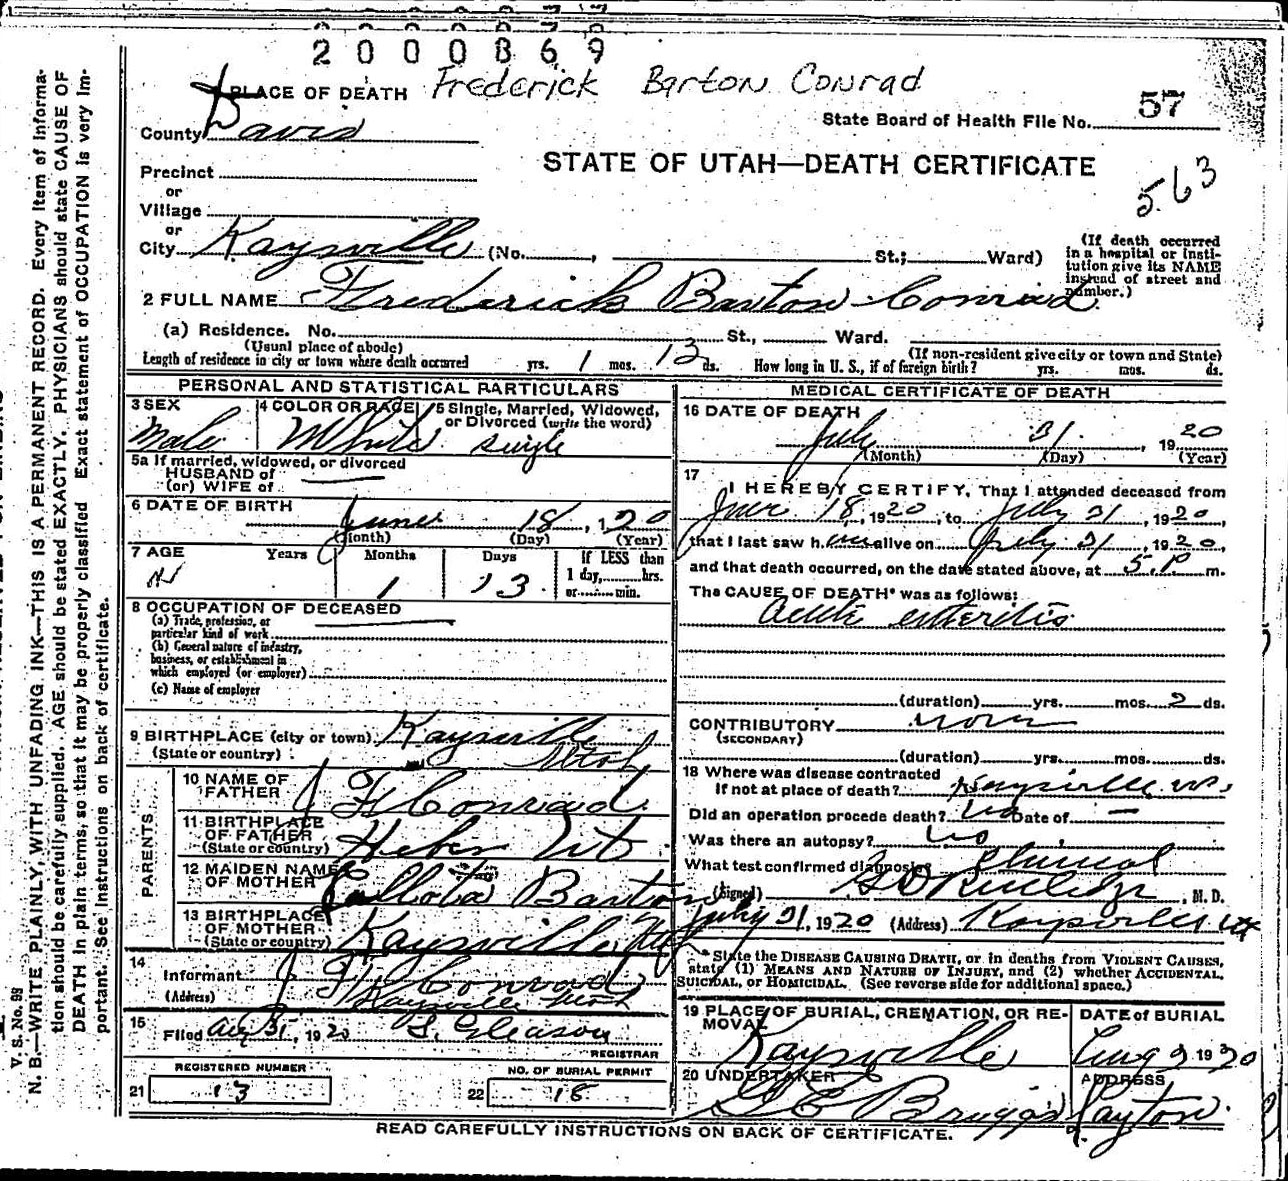 2000869
PLACE OF DEATH Frederick Barton Conrad
State Board of Health File No. 57
County Davis
STATE OF UTAH—DEATH CERTIFICATE
563
Precinct
or
Village
or
City Kaysville (No. , St.; Ward)
(If death occurred
in a hospital or insti-
tution give its NAME
instead of street and
number.)
2 FULL NAME Frederick Barton Conrad
(a) Residence. No. St., Ward.
(Usual place of abode) (If non-resident give city or town and State)
Length of residence in city or town where death occurred yrs. 1 mos. 13 ds. How long in U. S., if of foreign birth? yrs. mos. ds.
PERSONAL AND STATISTICAL PARTICULARS
3 SEX 4 COLOR OR RACE 5 Single, Married, Widowed,
or Divorced (write the word)
Male White Single
5a If married, widowed, or divorced
HUSBAND of
(or) WIFE of
6 DATE OF BIRTH
June 18, 1920
(Month) (Day) (Year)
7 AGE Years Months Days If LESS than
1 day, hrs.
or min.
1 13
8 OCCUPATION OF DECEASED
(a) Trade, profession, or
particular kind of work
(b) General nature of industry,
business, or establishment in
which employed (or employer)
(c) Name of employer
9 BIRTHPLACE (city or town) Kaysville
(State or country) Utah
PARENTS
10 NAME OF
FATHER J F Conrad
11 BIRTHPLACE
OF FATHER
(State or country) Heber Ut
12 MAIDEN NAME
OF MOTHER Barton
13 BIRTHPLACE
OF MOTHER
(State or country) Kaysville Utah
14
Informant Conrad
(Address) Kaysville Utah
15
Filed Aug 31, 1920 S. Gleason
REGISTRAR
REGISTERED NUMBER NO. OF BURIAL PERMIT
21 13 22 18
MEDICAL CERTIFICATE OF DEATH
16 DATE OF DEATH
July 31 1920
(Month) (Day) (Year)
17
I HEREBY CERTIFY, That I attended deceased from
June 18, 1920, to July 31, 1920,
that I last saw him alive on July 31, 1920,
and that death occurred, on the date stated above, at 5 P m.
The CAUSE OF DEATH* was as follows:
acute enteritis
(duration) yrs. mos. 2 ds.
CONTRIBUTORY none
(SECONDARY)
(duration) yrs. mos. ds.
18 Where was disease contracted
If not at place of death? Kaysville
Did an operation precede death? No Date of —
Was there an autopsy? No
What test confirmed diagnosis? Clinical
(Signed) , M. D.
July 31, 1920 (Address) Kaysville Ut
* State the DISEASE CAUSING DEATH, or in deaths from VIOLENT CAUSES,
state (1) MEANS AND NATURE OF INJURY, and (2) whether ACCIDENTAL,
SUICIDAL, or HOMICIDAL. (See reverse side for additional space.)
19 PLACE OF BURIAL, CREMATION, OR RE-
MOVAL DATE of BURIAL
Kaysville Aug 2 1920
20 UNDERTAKER ADDRESS
Layton
READ CAREFULLY INSTRUCTIONS ON BACK OF CERTIFICATE.
V. S. No. 98
N. B.—WRITE PLAINLY, WITH UNFADING INK—THIS IS A PERMANENT RECORD. Every item of informa-
tion should be carefully supplied. AGE should be stated EXACTLY. PHYSICIANS should state CAUSE OF
DEATH in plain terms, so that it may be properly classified Exact statement of OCCUPATION is very im-
portant. See instructions on back of certificate.